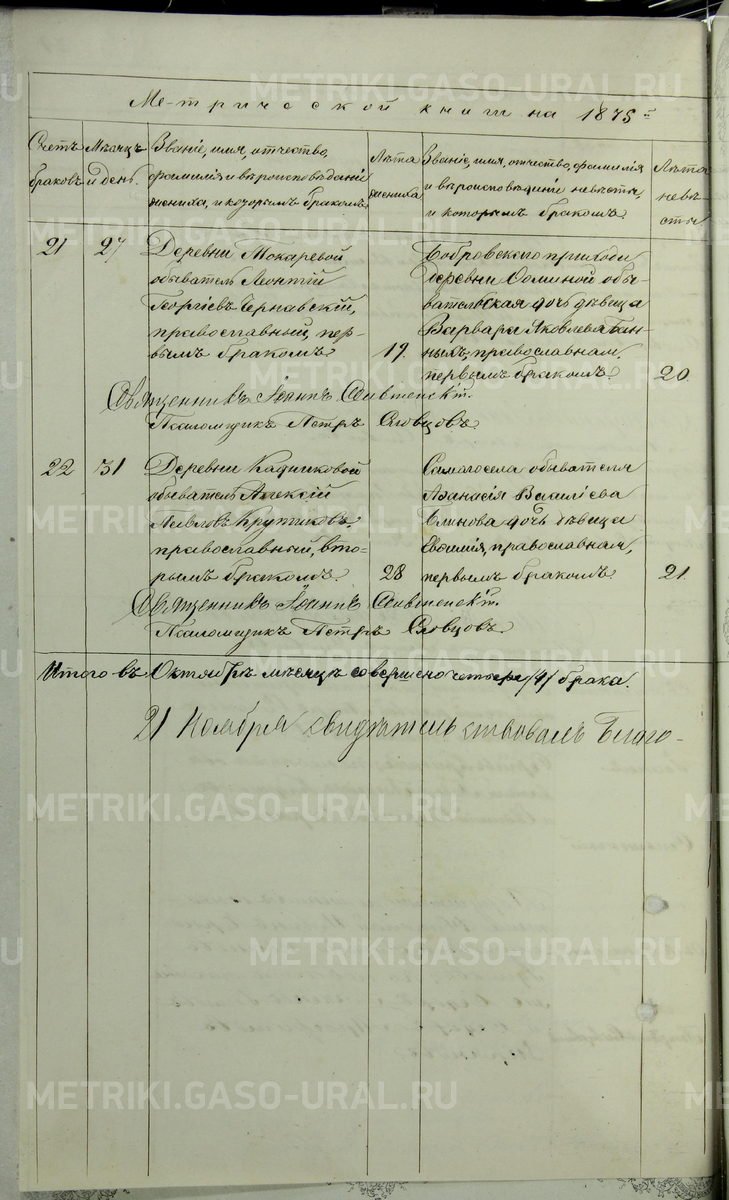 Метрической книги на 1875 й
Счетъ браковъ
Мѣсяцъ и день.
Званіе, имя, отчество,
фамилія и вѣроисповѣданіе
жениха, и которымъ бракомъ.
Лѣта
жениха
Званіе, имя, отчество, фамилія
и вѣроисповѣданіе невѣсты,
и которымъ бракомъ.
Лѣта
невѣ-
сты.
21
27
Деревни Токаревой
обыватель Леонтій
Георгіевъ Чернавскій,
православный, пер-
вымъ бракомъ.
19.
Бобровскаго прихода
деревни Фоминой обы-
вательская дочь дѣвица
Варвара Яковлева
православная,
первымъ бракомъ.
20.
Священникъ Іоаннъ
Псаломщикъ Петръ Словцовъ.
22
31
Деревни Кадниковой
обыватель Алексій
Павловъ Крутиковъ,
православный, вто-
рымъ бракомъ.
28
Самагосела обывателя
Аѳанасія Василіева
Блинова дочь дѣвица
Евѳимія, православная,
первымъ бракомъ.
21.
Священникъ Іоаннъ
Псаломщикъ Петръ Словцовъ.
Итого въ Октябрѣ мѣсяцѣ совершено четыре /4/ брака.
21 Ноября свидѣтельствовалъ Благо-
METRIKI.GASO-URAL.RU